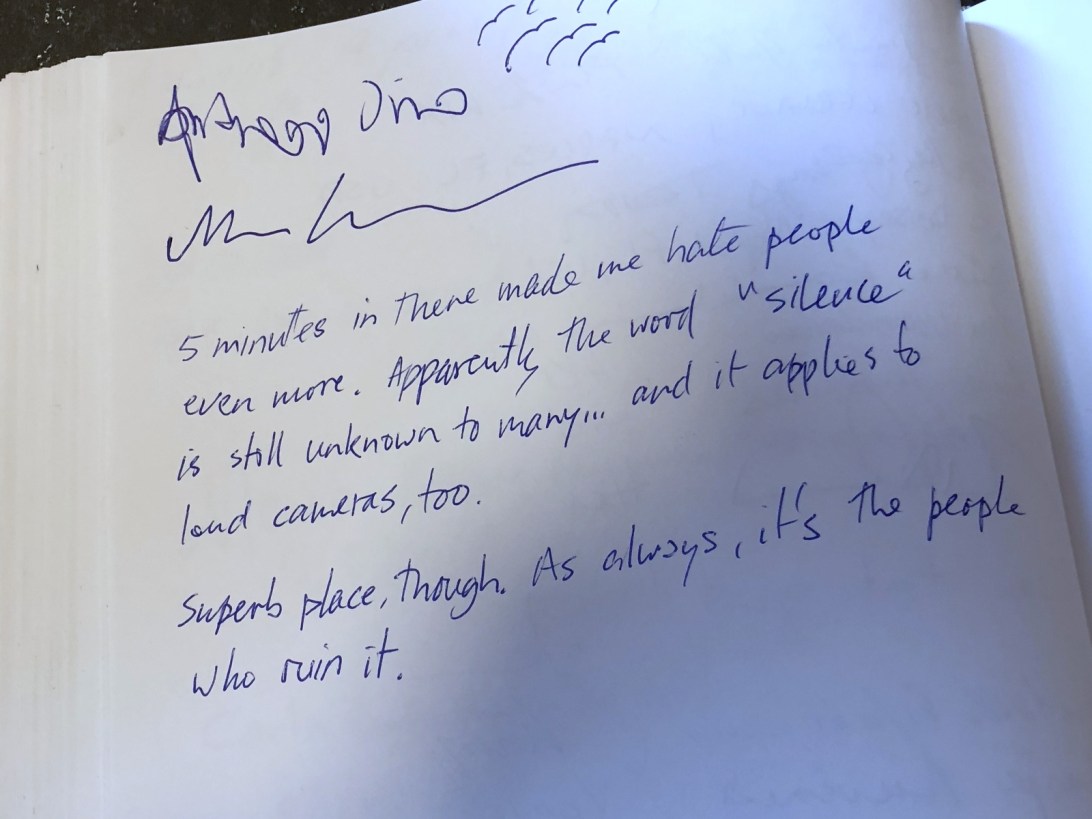 5 minutes in there made me hate people
even more. Apparently, the word "silence"
is still unknown to many... and it applies to
loud cameras, too.
Superb place, though. As always, it's the people
who ruin it.